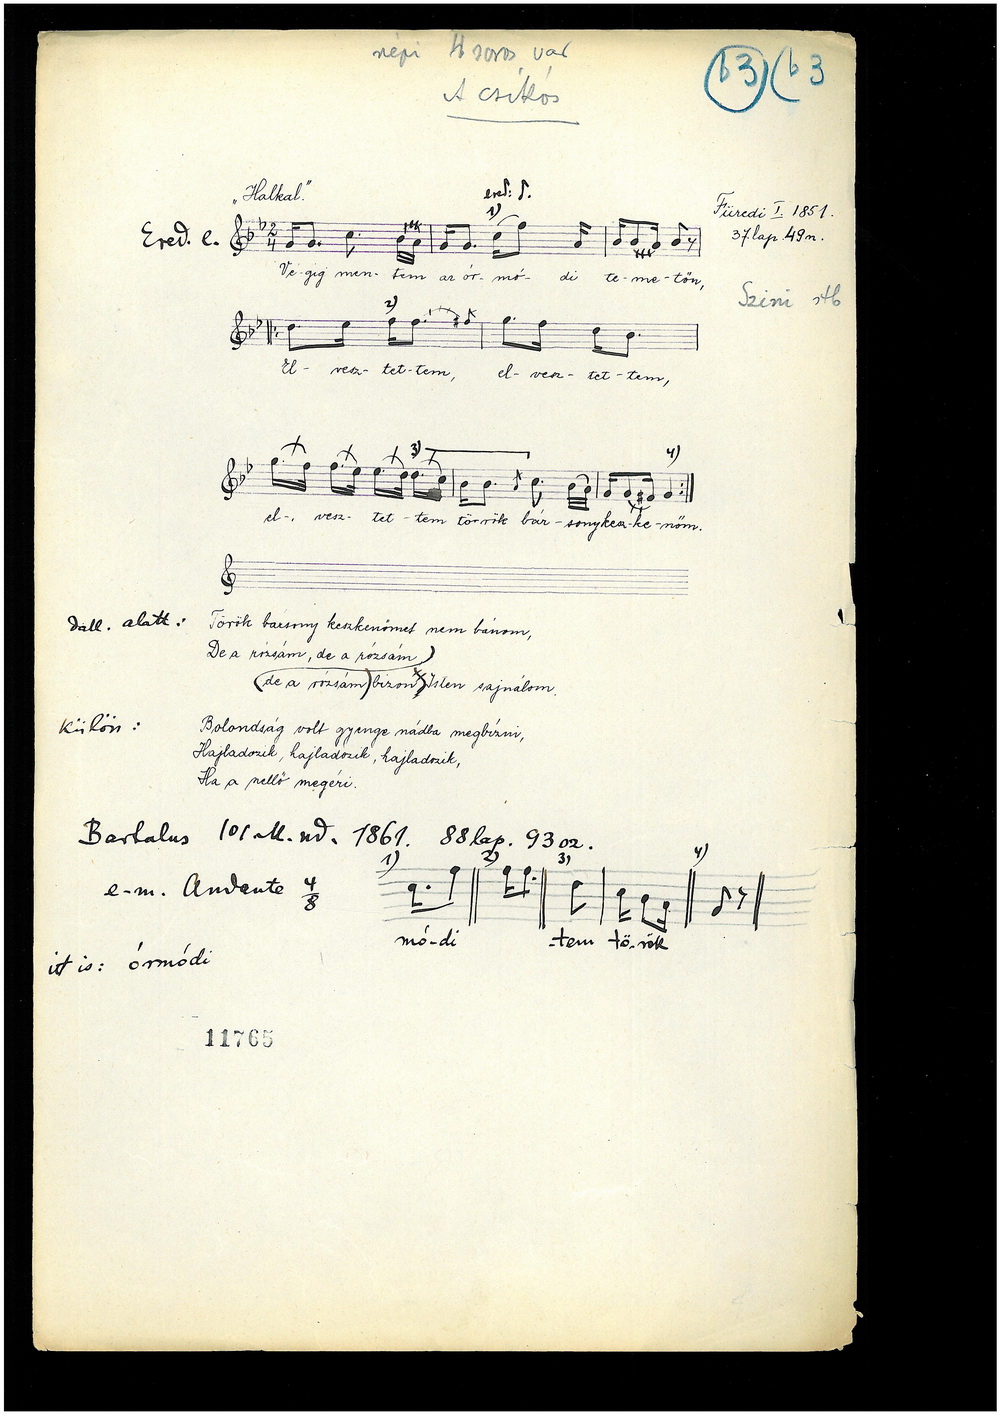 népi 4 soros var
A csikós
b3 (b3
„Halkal."
ered:
1)
Füredi I. 1851.
37lap. 49n.
Ered. e.
2
4
Vé-gig men-tem az ór-mó-di te-me-tőn,
Szini stb
2)
El-vesz-tet-tem, el-vesz-tet-tem,
3) 4)
el-, vesz-tet-tem török bár-sonykesz-ke-nőm.
Dall. alatt: Török bársony keszkenőmet nem bánom,
De a rózsám, de a rózsám
(de a rózsám) bizon Isten sajnálom.
Külön: Bolondság volt gyenge nádba megbízni,
Hajladozik, hajladozik, hajladozik,
Ha a szellő megéri.
Bartalus 101 M. nd. 1861. 88lap. 93sz.
1) 2) 3) 4)
e-m. Andante 4/8
mó-di -tem tö-rök
itt is: órmódi
11765